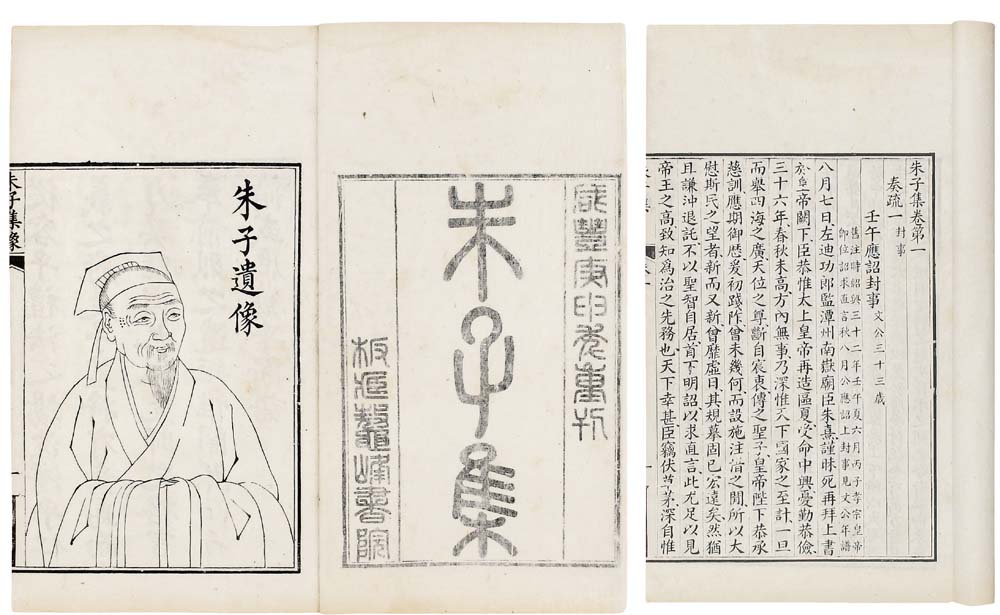 朱子遺像
朱子集像
一
咸豐庚申年重刊
朱子集
板庋鼇峰書院
朱子集卷第一
奏疏一 封事
壬午應詔封事 文公三十三歲
舊注時紹興三十二年壬午夏六月丙子孝宗皇帝
即位詔求直言秋八月公應詔上封事見文公年譜
八月七日左迪功郎監潭州南嶽廟臣朱熹謹昧死再拜上書
於皇帝闕下臣恭惟太上皇帝再造區夏受命中興憂勤恭儉
三十六年春秋未高方內無事乃深惟天下國家之至計一旦
而舉四海之廣天位之尊斷自宸衷傳之聖子皇帝陛下恭承
慈訓應期御歷爰初踐阼曾未幾何而設施注措之閒所以大
慰斯民之望者新而又新曾靡虛日其規摹固已宏遠矣然猶
且謙沖退託不以聖智自居首下明詔以求直言此尤足以見
帝王之高致知為治之先務也天下幸甚臣竊伏草茅深自惟